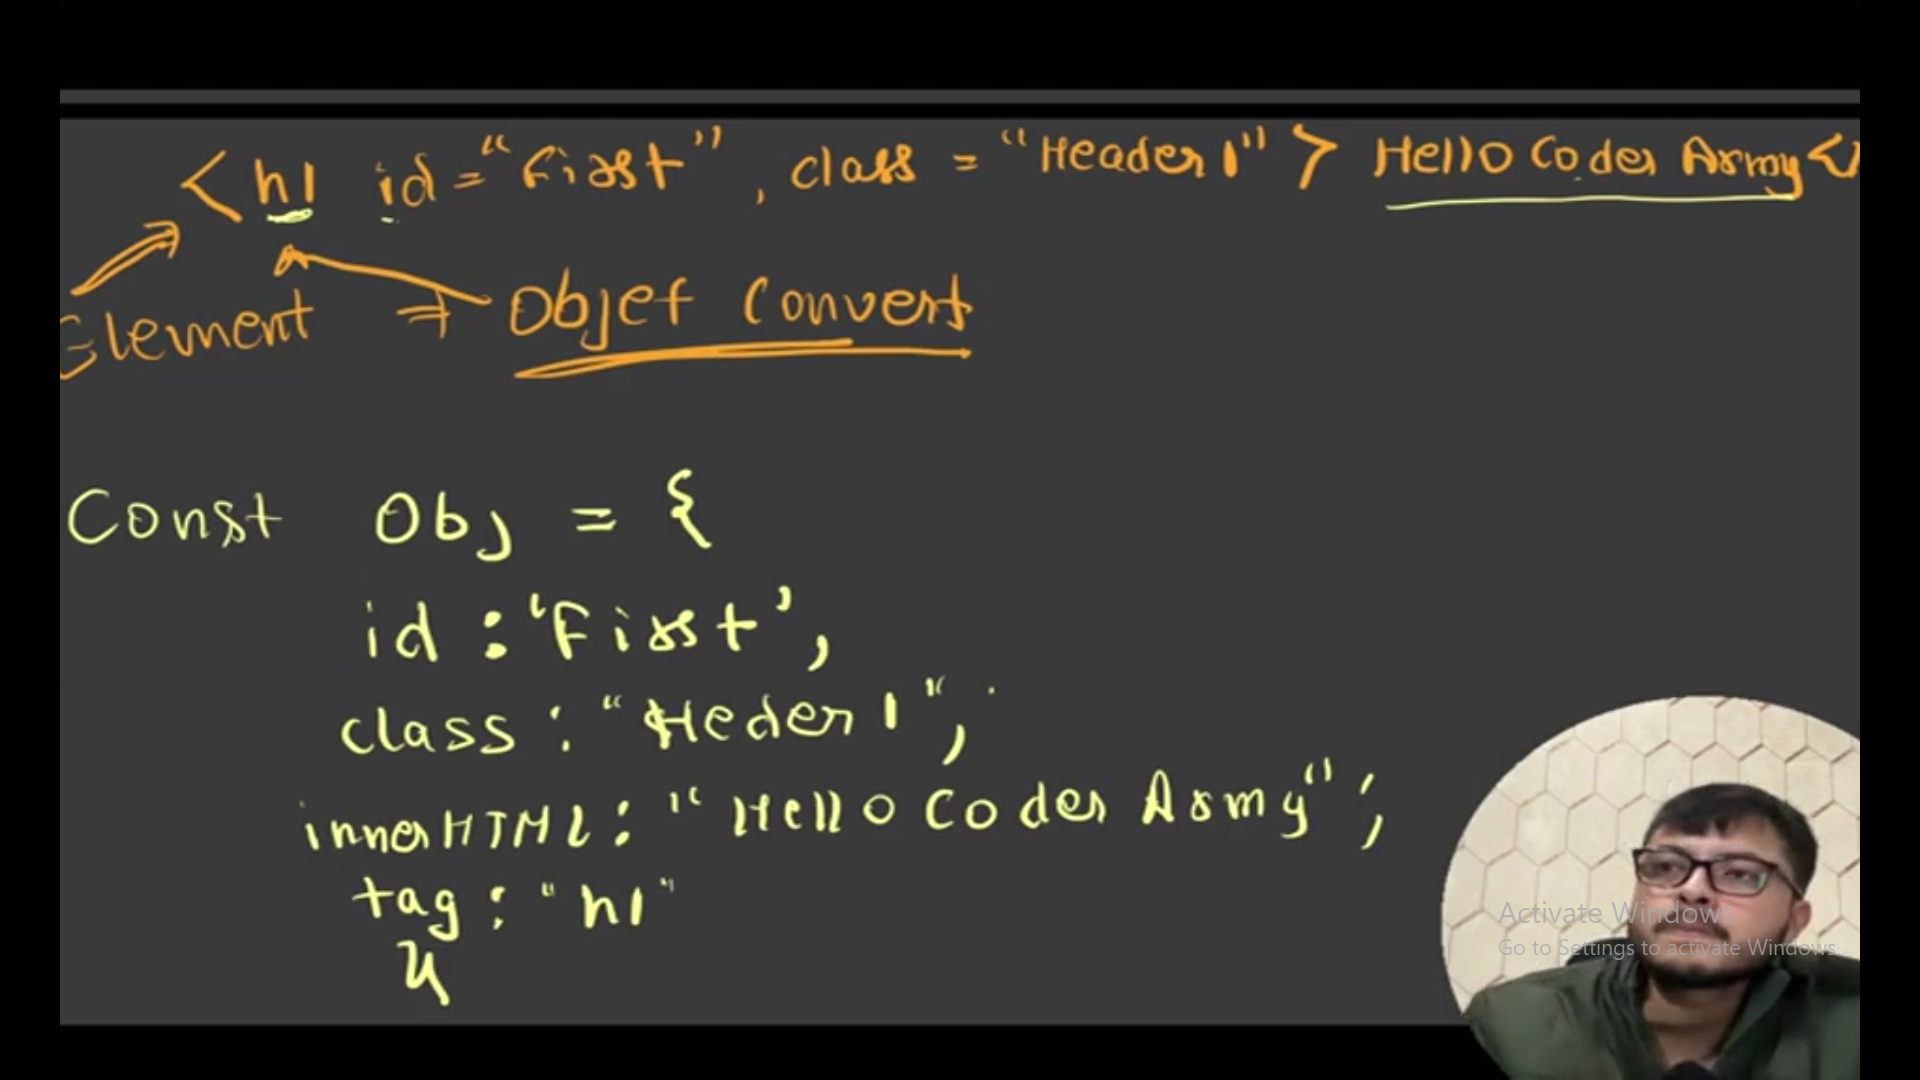 <h1 id="First", class = "Header1"> Hello Coder Army<
Element ⇒ Objet Convert
Const Obj = {
id : 'First',
class : "Heder1",
innerHTML : "Hello Coder Army",
tag : "h1"
}
Activate Windows
Go to Settings to activate Windows.